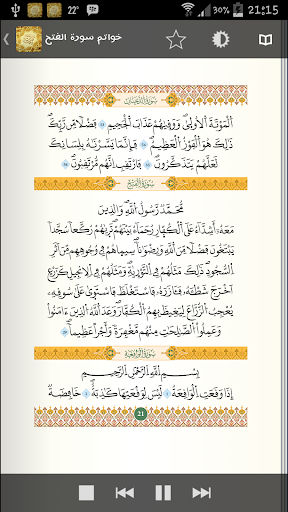 22° 39% 21:15
خواتم سورة الفتح
سورة الدخان
ٱلْمَوْتَةَ ٱلْأُولَىٰ ۖ وَوَقَىٰهُمْ عَذَابَ ٱلْجَحِيمِ ٥٦ فَضْلًا مِّن رَّبِّكَ ۚ
ذَٰلِكَ هُوَ ٱلْفَوْزُ ٱلْعَظِيمُ ٥٧ فَإِنَّمَا يَسَّرْنَٰهُ بِلِسَانِكَ
لَعَلَّهُمْ يَتَذَكَّرُونَ ٥٨ فَٱرْتَقِبْ إِنَّهُم مُّرْتَقِبُونَ ٥٩
سورة الفتح
مُّحَمَّدٌ رَّسُولُ ٱللَّهِ ۚ وَٱلَّذِينَ
مَعَهُۥٓ أَشِدَّآءُ عَلَى ٱلْكُفَّارِ رُحَمَآءُ بَيْنَهُمْ ۖ تَرَىٰهُمْ رُكَّعًا سُجَّدًا
يَبْتَغُونَ فَضْلًا مِّنَ ٱللَّهِ وَرِضْوَٰنًا ۖ سِيمَاهُمْ فِى وُجُوهِهِم مِّنْ أَثَرِ
ٱلسُّجُودِ ۚ ذَٰلِكَ مَثَلُهُمْ فِى ٱلتَّوْرَىٰةِ ۚ وَمَثَلُهُمْ فِى ٱلْإِنجِيلِ كَزَرْعٍ
أَخْرَجَ شَطْـَٔهُۥ فَـَٔازَرَهُۥ فَٱسْتَغْلَظَ فَٱسْتَوَىٰ عَلَىٰ سُوقِهِۦ
يُعْجِبُ ٱلزُّرَّاعَ لِيَغِيظَ بِهِمُ ٱلْكُفَّارَ ۗ وَعَدَ ٱللَّهُ ٱلَّذِينَ ءَامَنُوا۟
وَعَمِلُوا۟ ٱلصَّٰلِحَٰتِ مِنْهُم مَّغْفِرَةً وَأَجْرًا عَظِيمًۢا ٢٩
سورة الواقعة
بِسْمِ ٱللَّهِ ٱلرَّحْمَٰنِ ٱلرَّحِيمِ
إِذَا وَقَعَتِ ٱلْوَاقِعَةُ ١ لَيْسَ لِوَقْعَتِهَا كَاذِبَةٌ ٢ خَافِضَةٌ
21